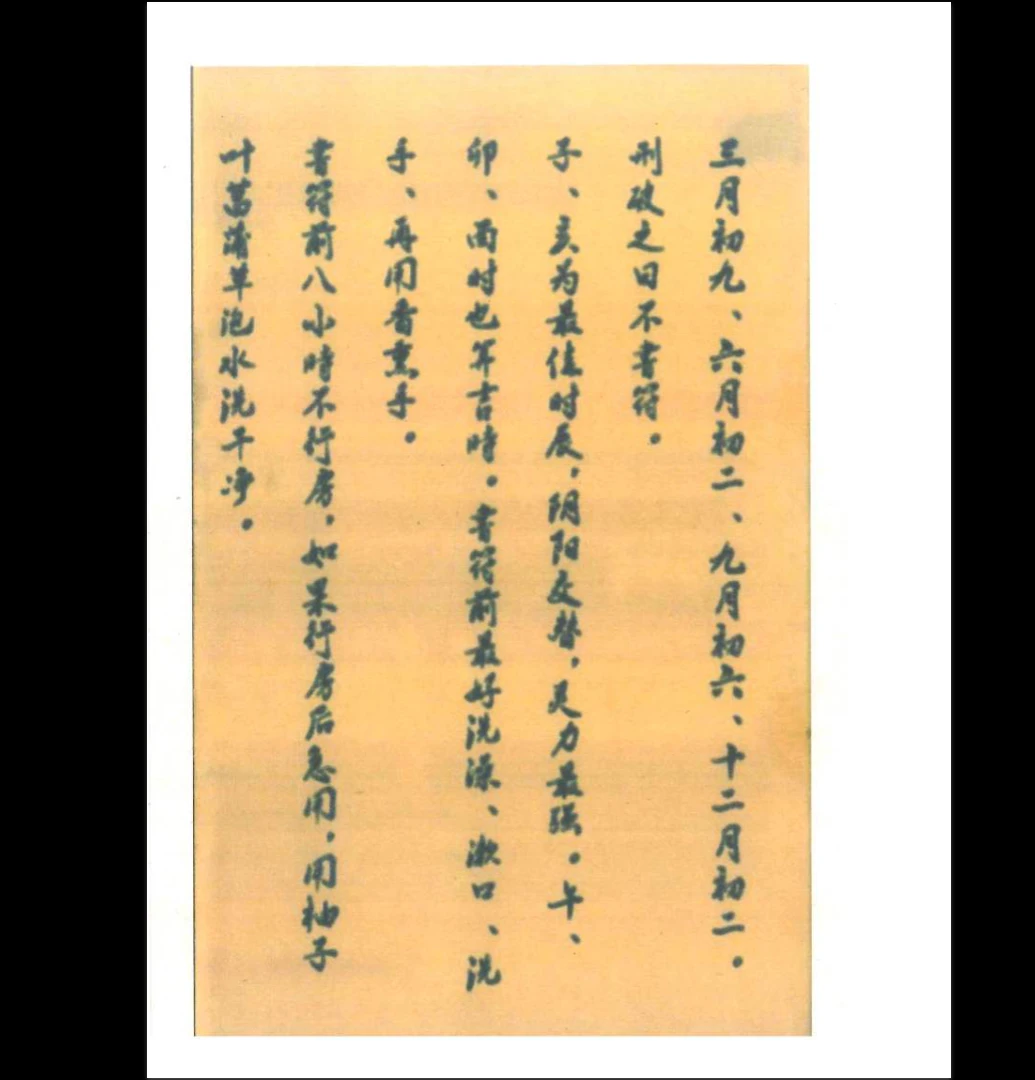 三月初九、六月初二、九月初六、十二月初二。
刑破之日不書符。
子、亥为最佳时辰，阴阳交替，灵力最强。午、
卯、酉时也算吉時。書符前最好洗澡、漱口、洗
手、再用香熏手。
書符前八小時不行房，如果行房后急用，用柚子
叶菖蒲草泡水洗干净。